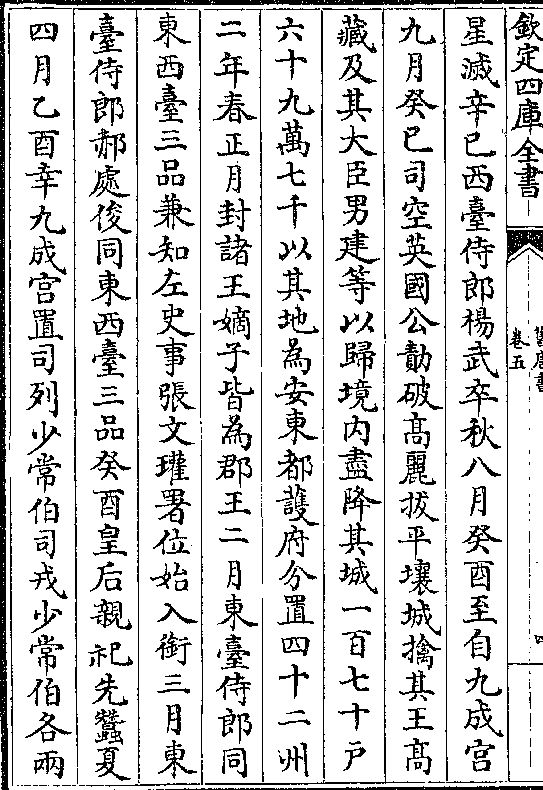 欽定四庫全書
舊唐書
卷五
四
星滅辛已西臺侍郎楊武卒秋八月癸酉至自九成宮
九月癸已司空英國公勣破髙麗拔平壤城擒其王髙
藏及其大臣男建等以歸境内盡降其城一百七十戸
六十九萬七千以其地為安東都䕶府分置四十二州
二年春正月封諸王嫡子皆為郡王二月東臺侍郎同
東西臺三品兼知左史事張文瓘署位始入銜三月東
臺侍郎郝處俊同東西臺三品癸酉皇后親祀先蠶夏
四月乙酉幸九成宫置司列少常伯司戎少常伯各兩